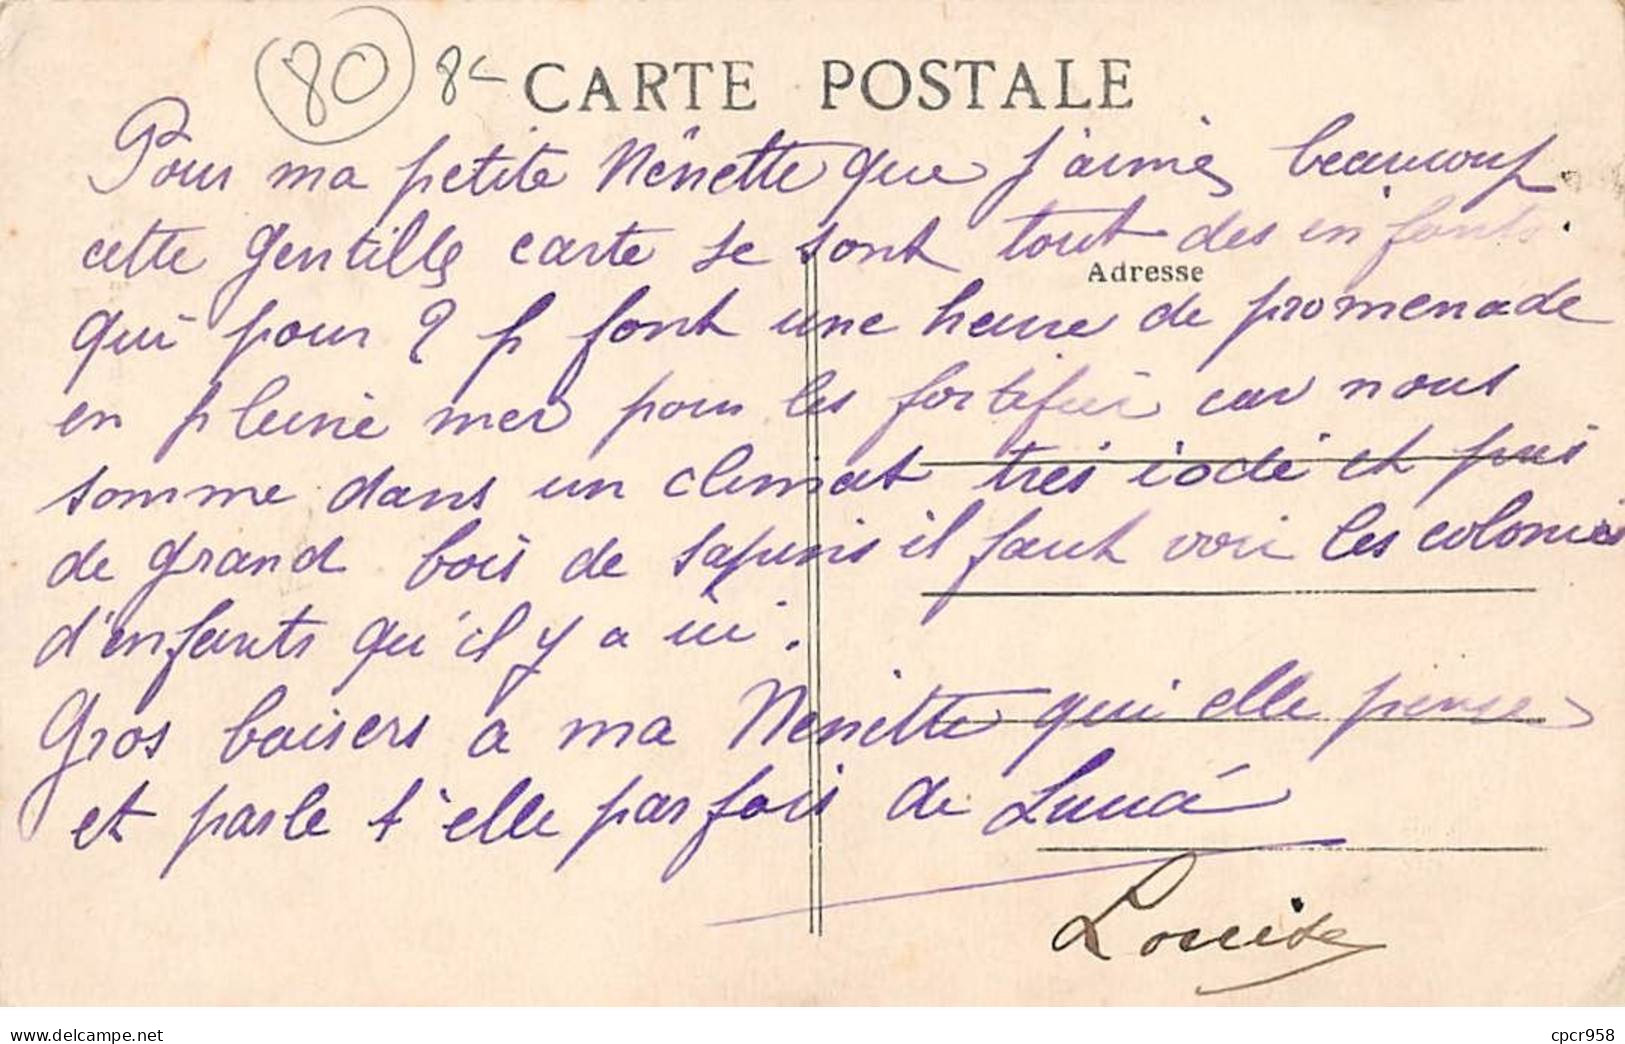 80 8€ CARTE POSTALE
Pour ma petite Nénette que j'aime beaucoup
cette gentille carte se sont tout des enfants.
Adresse
qui pour 2 f font une heure de promenade
en pleine mer pour les fortifier car nous
somme dans un climat très iodé et puis
de grand bois de sapins il faut voir les colonies
d'enfants qu'il y a ici.
Gros baisers a ma Nenette qui elle pense
et parle t'elle parfois de
Louise
www.delcampe.net
cpcr958